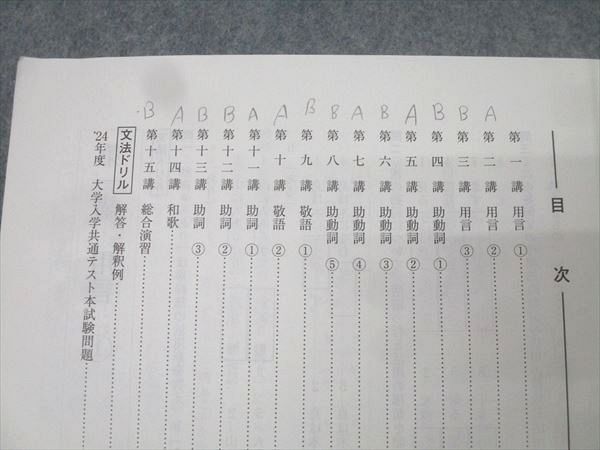 目次
第一講 用言①
A 第二講 用言②
B 第三講 用言③
B 第四講 助動詞①
A 第五講 助動詞②
B 第六講 助動詞③
A 第七講 助動詞④
B 第八講 助動詞⑤
B 第九講 敬語①
A 第十講 敬語②
A 第十一講 助詞①
B 第十二講 助詞②
B 第十三講 助詞③
A 第十四講 和歌
B 第十五講 総合演習
文法ドリル 解答・解釈例
'24年度 大学入学共通テスト本試験問題